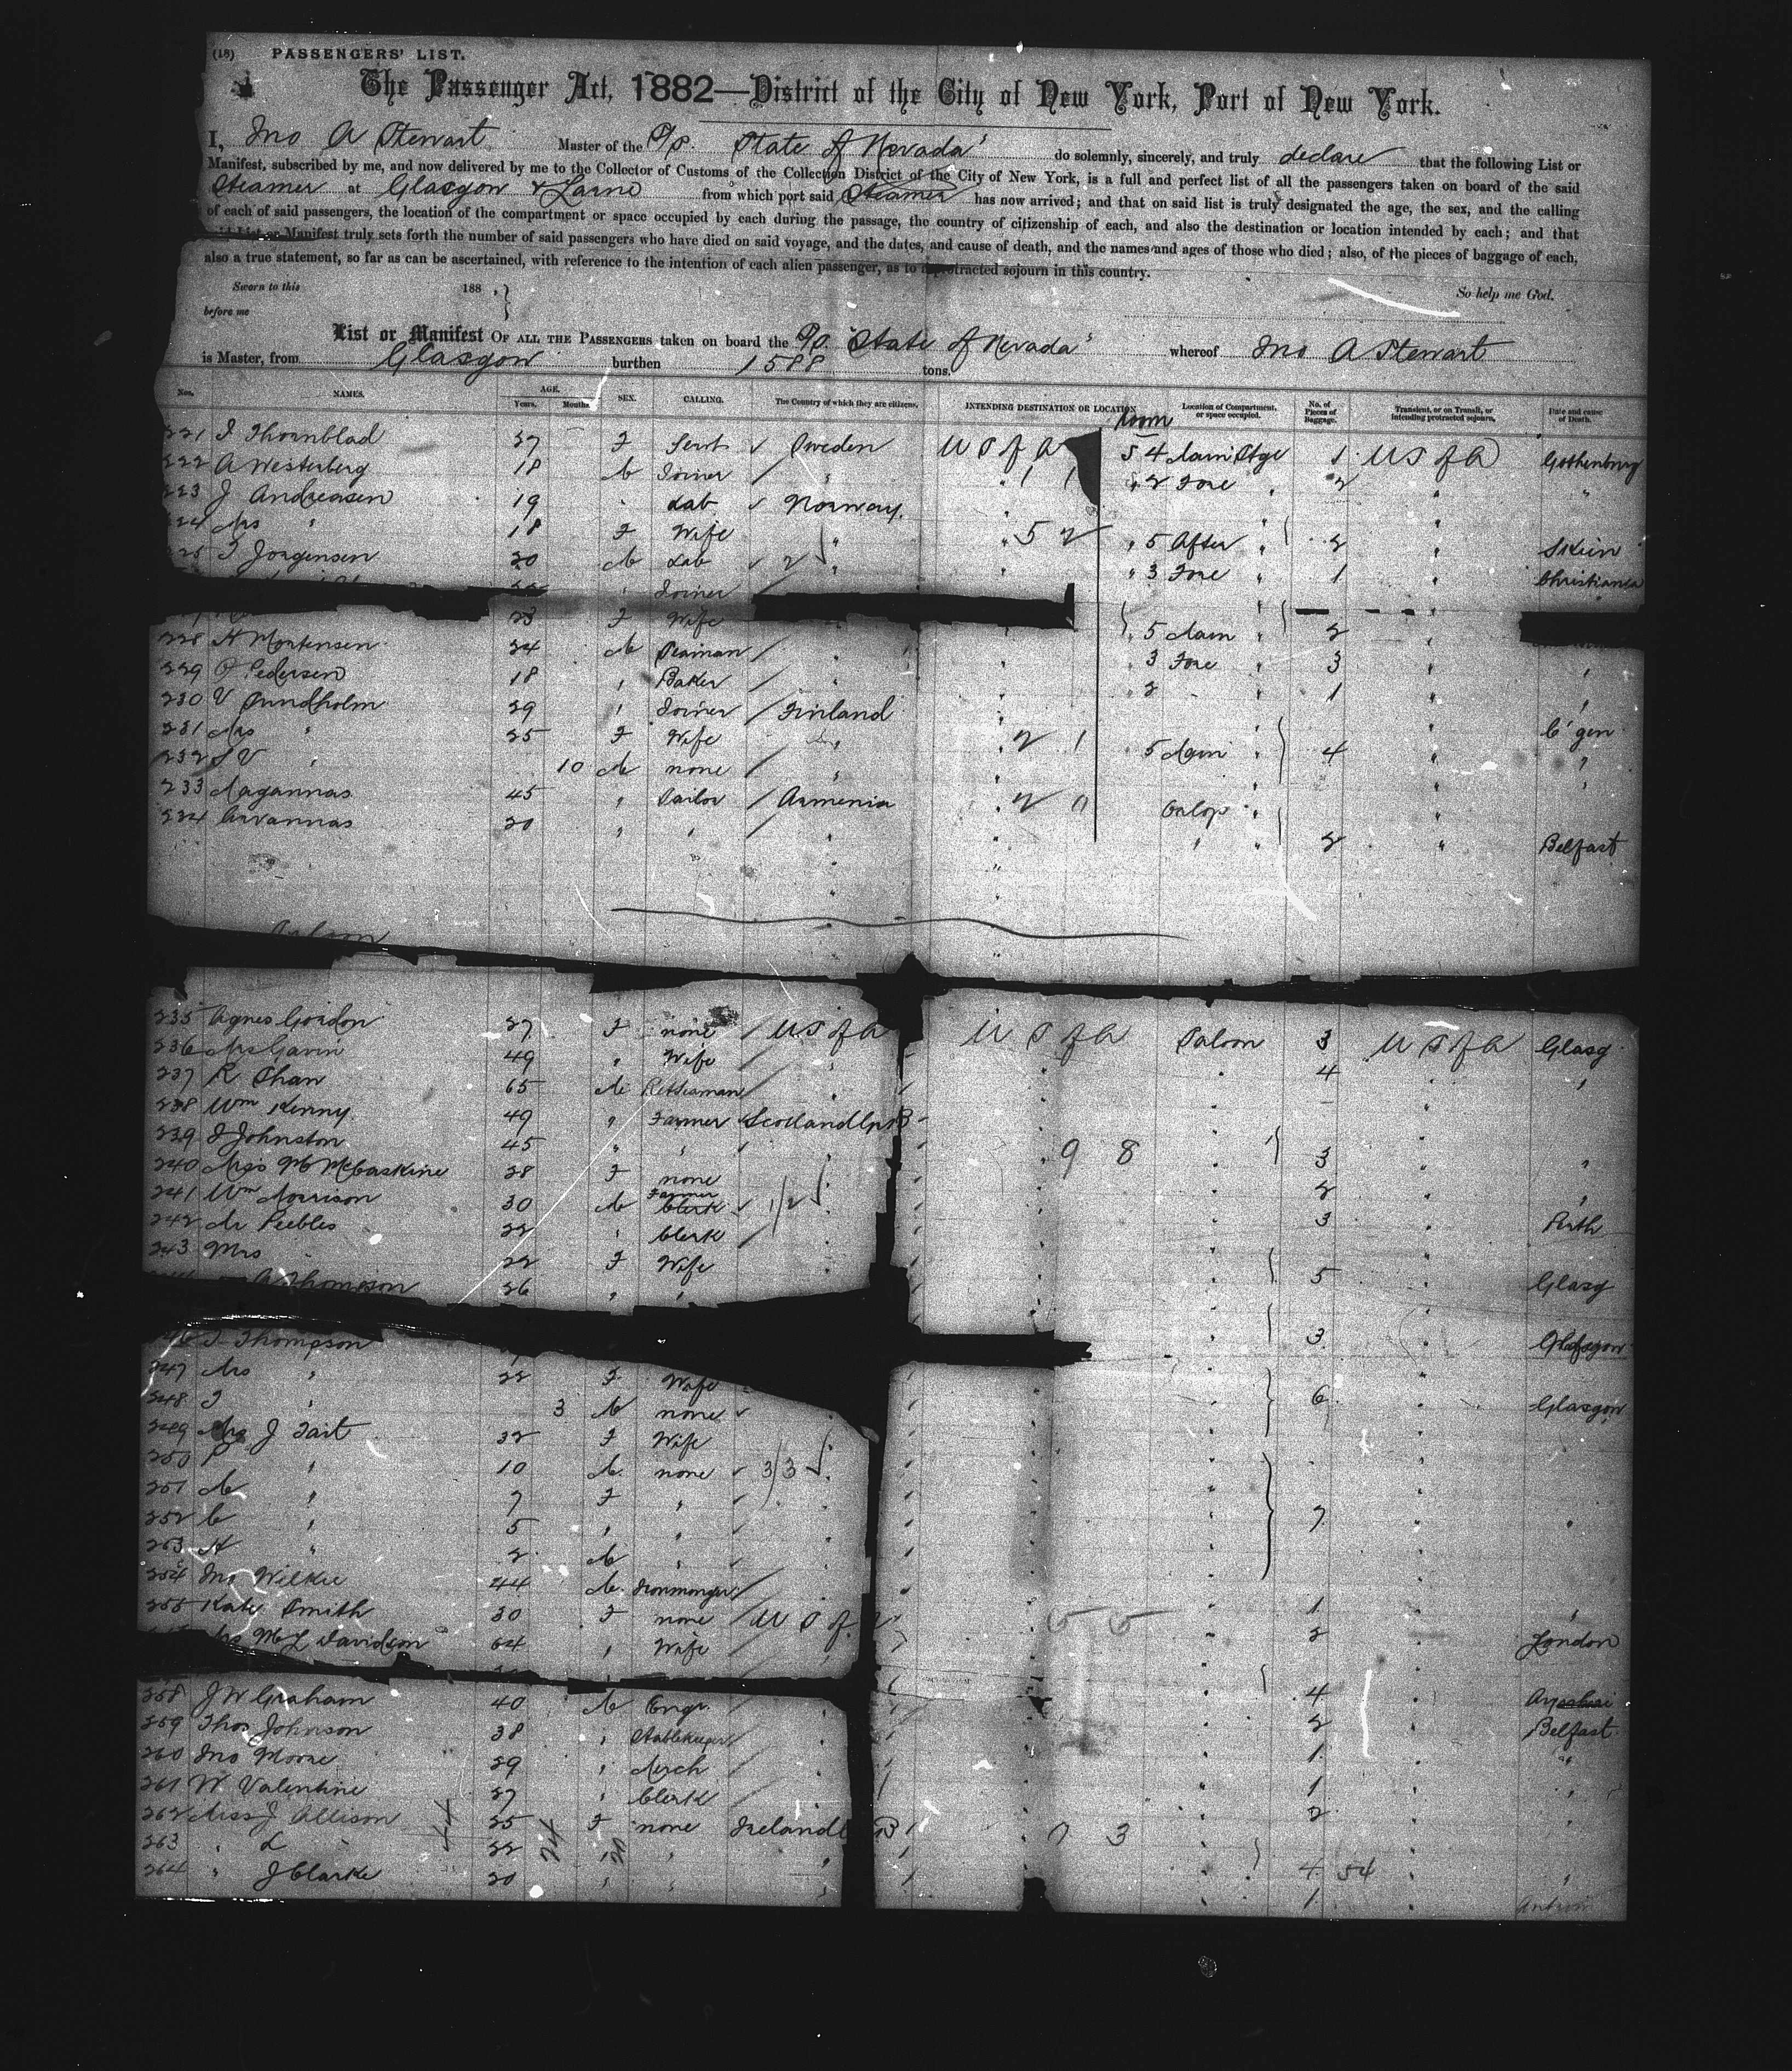 (18) PASSENGERS' LIST.
The Passenger Act, 1882—District of the City of New York, Port of New York.
I, Jno A Stewart Master of the S/S. "State of Nevada" do solemnly, sincerely, and truly declare that the following List or
Manifest, subscribed by me, and now delivered by me to the Collector of Customs of the Collection District of the City of New York, is a full and perfect list of all the passengers taken on board of the said
Steamer at Glasgow & Larne from which port said Steamer has now arrived; and that on said list is truly designated the age, the sex, and the calling
of each of said passengers, the location of the compartment or space occupied by each during the passage, the country of citizenship of each, and also the destination or location intended by each; and that
said List or Manifest truly sets forth the number of said passengers who have died on said voyage, and the dates, and cause of death, and the names and ages of those who died; also, of the pieces of baggage of each,
also a true statement, so far as can be ascertained, with reference to the intention of each alien passenger, as to a protracted sojourn in this country.
Sworn to this 188 , } So help me God.
before me
List or Manifest OF ALL THE PASSENGERS taken on board the S/S. "State of Nevada" whereof Jno A Stewart
is Master, from Glasgow burthen 1588 tons.
Nos. NAMES. AGE. Years. Months. SEX. CALLING. The Country of which they are citizens. INTENDING DESTINATION OR LOCATION Room Location of Compartment, or space occupied. No. of Pieces of Baggage. Transient, or on Transit, or intending protracted sojourn. Date and cause of Death.
221 Thornblad 27 F Servt Sweden U S of A 5 4 Main Stge 1 U S of A Gothenburg
222 A Westerberg 18 M Joiner " " 2 Fore " 2 " "
223 J Andreasen 19 " Lab Norway. "
224 Mrs " 18 F Wife " " 5 2 " 5 After " 2 " Skien
225 Jorgensen 20 M Lab 2 " " " 3 Fore " 1 " Christiania
Joiner
23 F Wife " 5 Main " 2 "
228 H Mortensen 24 M Seaman " " 3 Fore " 3 " "
229 Pedersen 18 " Baker " " 2 " " 1 " "
230 V Sundholm 29 " Joiner Finland " C'gen
231 Mrs " 25 F Wife " " 2 1 5 Main " 4 " "
232 " 10 M none " " "
233 Magannas 45 " Tailor Armenia " 2 0 Orlop "
234 Arvannas 20 " " " " " 2 " Belfast
Saloon
235 Agnes Gordon 27 F none U S of A U S of A Saloon 3 U S of A Glasg
236 Mrs Gavin 49 " Wife " " " 4 " "
237 R Shan 65 M " " "
238 Wm Kenny 49 " Farmer Scotland " "
239 J Johnston 45 " " " 9 8 " 3 " "
240 Mrs M McCaskine 28 F none " 2 " "
241 Wm Morrison 30 M Farmer Clerk 1/2 " 3 " Perth
242 Mr Peebles 22 " Clerk "
243 Mrs 22 F Wife " 5 " Glasg
A Thompson 26 " " "
246 Thompson " 3 " Glasgow
247 Mrs " 22 F Wife
248 J " 3 M none " 6 " Glasgow
249 Mrs J Tait 32 F Wife
250 P " 10 M none 3/3
251 M " 7 F "
252 C " 5 " " 7 "
253 A " 2 M "
254 Jno Wilkie 44 M Ironmonger " 1 "
255 Kate Smith 30 F none U S of 5 5 " 2 London
Mrs M L Davidson 64 " Wife "
258 J W Graham 40 M Engr " 4 "
259 Thos Johnson 38 " Stablekeeper " 2 Belfast
260 Jno Moore 29 " Merch " 1 "
261 W Valentine 27 " Clerk " 1 "
262 Miss J Allison 44 25 24 F 20 none Ireland " 7 3 " 2 "
263 " L 22 " " " " 4 54 "
264 " J Clarke 20 " " " " 1 " Antrim